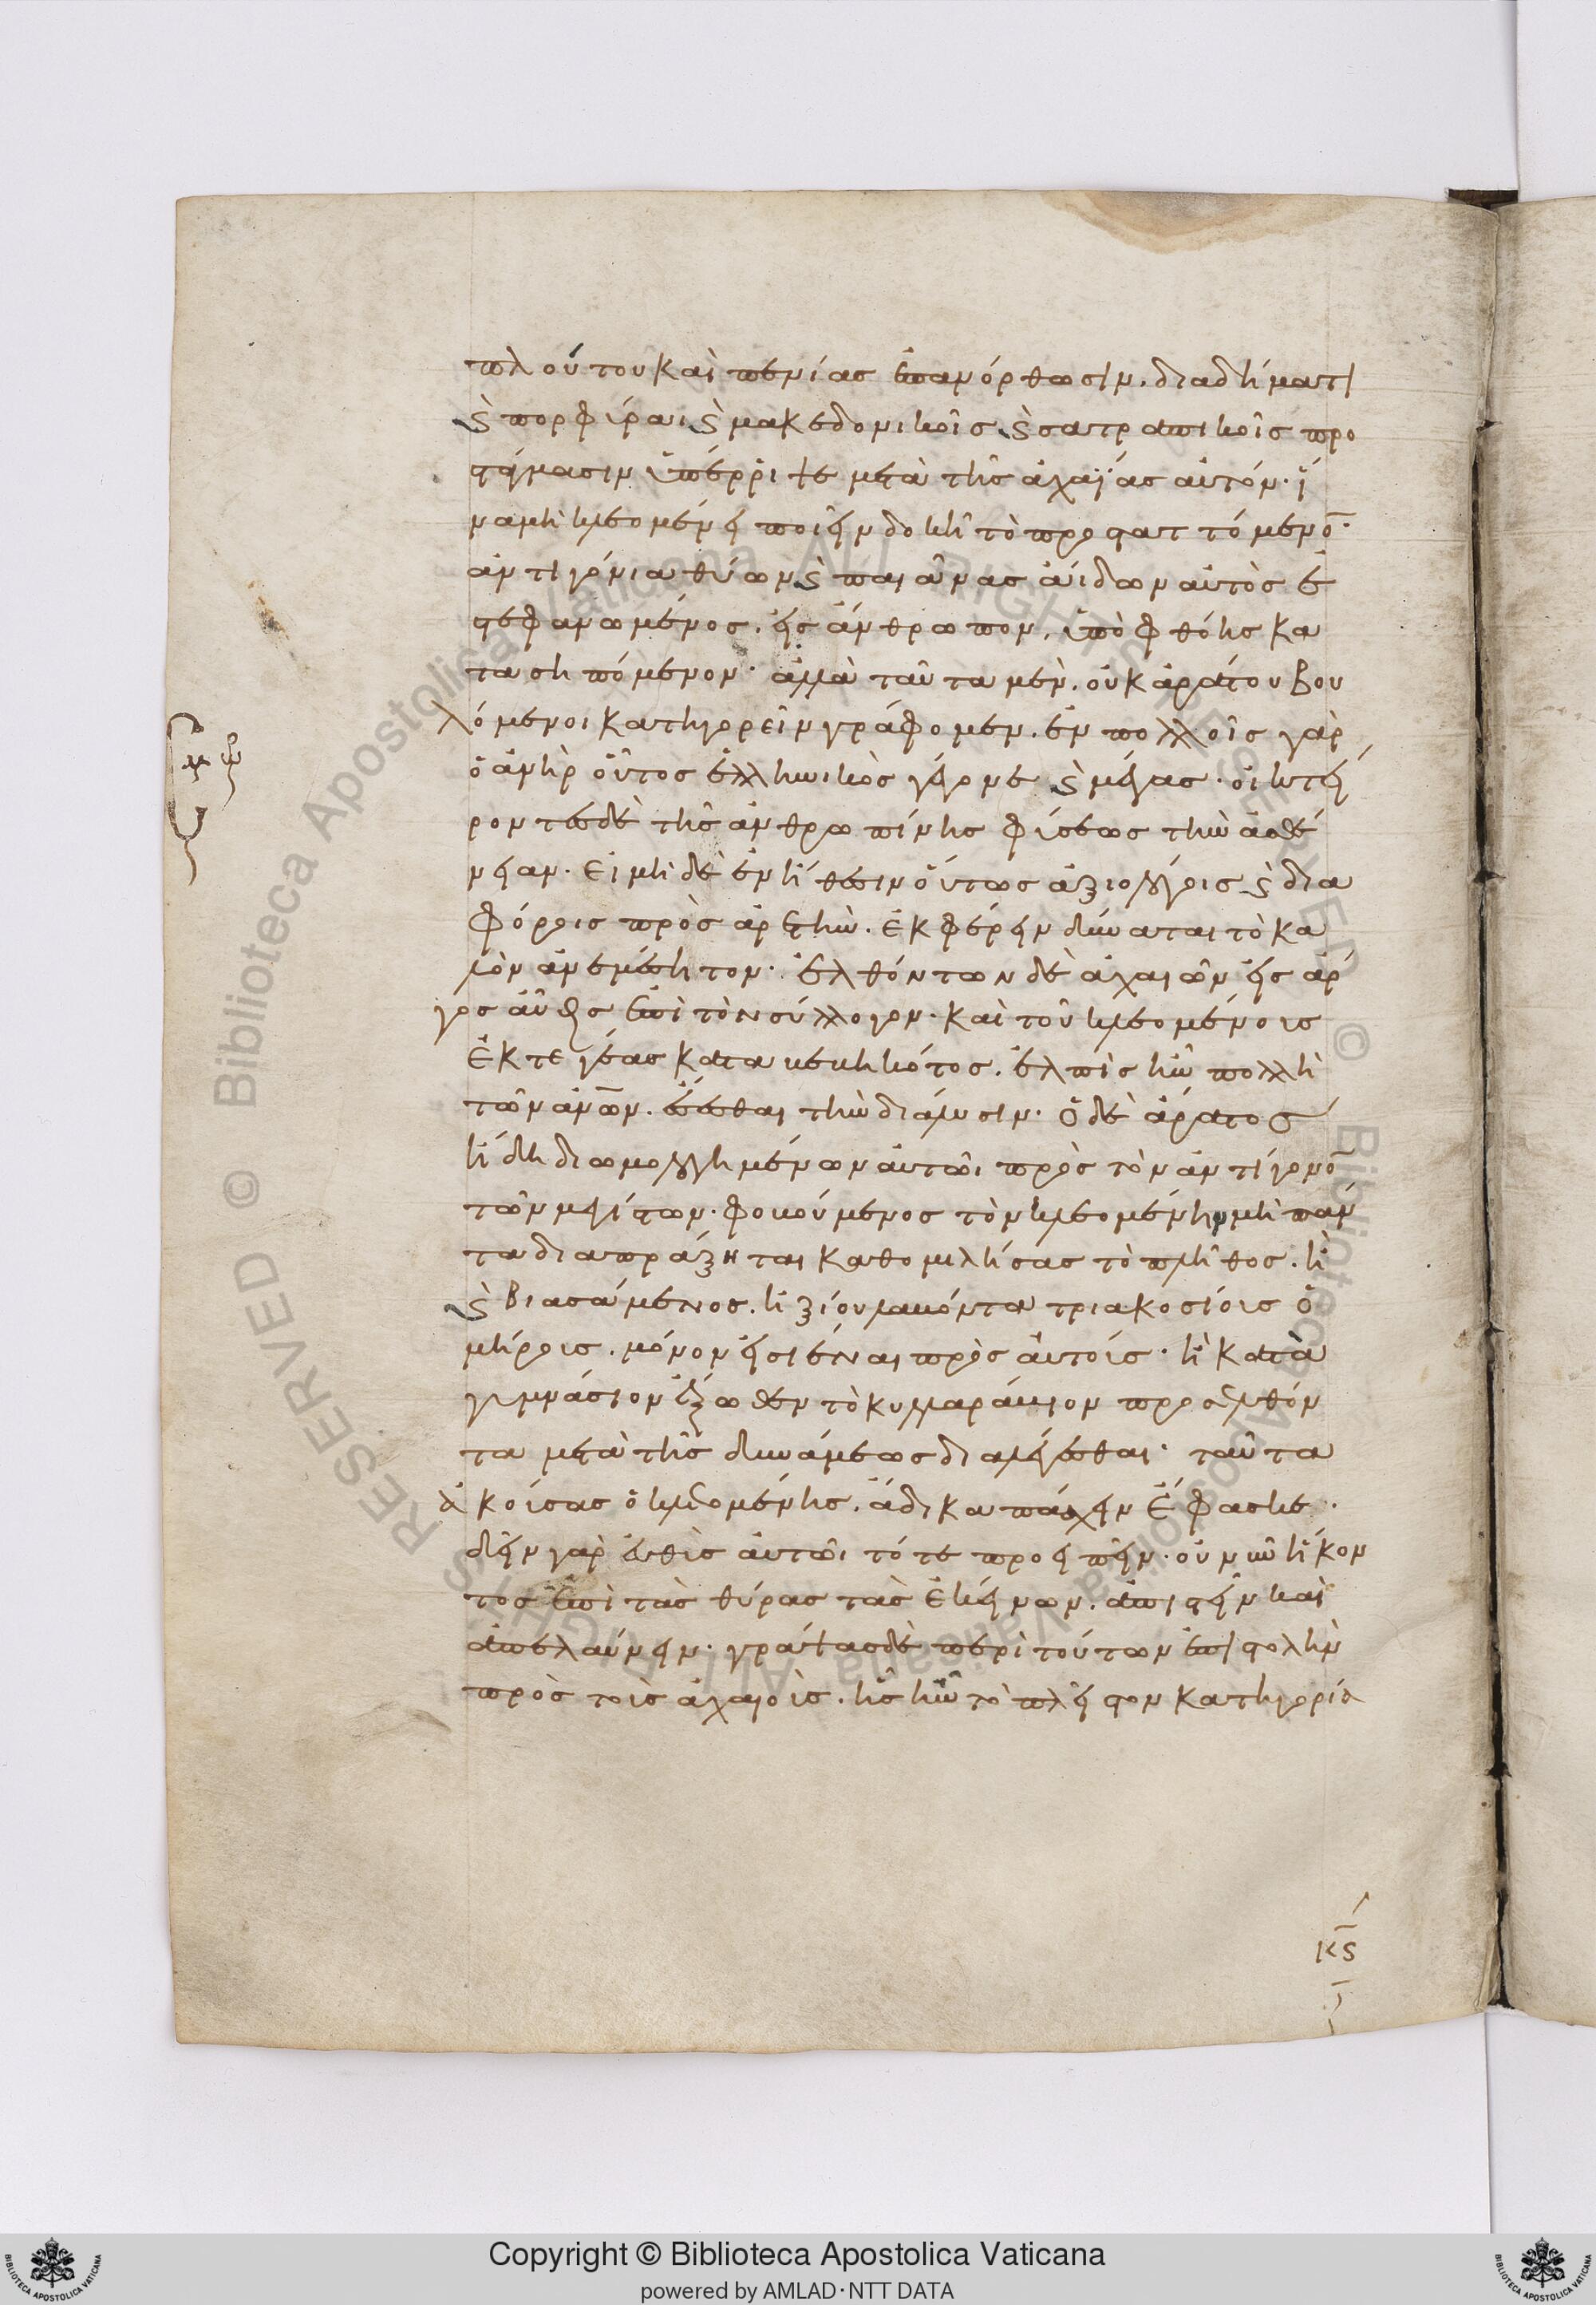 πλούτου καὶ πενίας ἐπανόρθωσιν. διαδήματι
ϗ πορφύραι ϗ μακεδονικοῖς ϗ σατραπικοῖς προ
στάγμασιν ὑπέρριψε μετὰ τῆς ἀχαΐας αὑτόν· ἵ
να μὴ κλεομένει ποιεῖν δοκῆ τὸ προσταττόμενο̅·
ἀντιγόνια θύων ϗ παιᾶνας ἄιδων αὐτὸς ἐ
στεφανωμένος. εἰς ἄνθρωπον, ὑπὸ φθόης κα
τασηπόμενον· ἀλλὰ ταῦτα μὲν. οὐκ ἀράτου βου
λόμενοι κατηγορεῖν γράφομεν. ἐν πολλοῖς γὰρ
ὁ ἀνὴρ οὗτος ἑλληνικὸς γέγονε ϗ μέγας· οἰκτεί
ροντες δὲ τῆς ἀνθρωπίνης φύσεως τὴν ἀσθέ
νειαν. εἰ μηδὲ ἐν ἤθεσιν οὕτως ἀξιολόγοις ϗ δια
φόροις πρὸς ἀρετὴν. ἐκφέρειν δύναται τὸ κα
λὸν ἀνεμέσητον· ἐλθόντων δὲ ἀχαιῶν εἰς ἄρ
γος αὖθις ἐπὶ τὸν σύλλογον. καὶ τοῦ κλεομένους
ἐκ τεγέας καταβεβηκότος. ἐλπὶς ἦν πολλὴ
τῶν ἀν̅ων. ἔσεσθαι τὴν διάλυσιν. ὁ δὲ ἄρατος
ἤδη διωμολογημένων αὐτῶι πρὸς τὸν ἀντίγονο̅
τῶν μεγίστων. φοβούμενος τὸν κλεομένην μὴ πάν
τα διαπράξηται καθομιλήσας τὸ πλῆθος. ἢ
ϗ βιασάμενος. ἠξίου λαβόντα τριακοσίους ὁ
μήρους. μόνον εἰσιέναι πρὸς αὐτούς. ἢ κατὰ
γυμνάσιον ἔξωθεν τὸ κυλλαράβιον προσελθόν
τα μετὰ τῆς δυνάμεως διαλέγεσθαι· ταῦτα
ἀκούσας ὁ κλεομένης. ἄδικα πάσχειν ἔφασκε.
δεῖν γὰρ εὐθὺς αὐτῶι τότε προειπεῖν. οὐ νῦν ἥκον
τος ἐπὶ τὰς θύρας τὰς ἐκείνων. ἀπιστεῖν καὶ
ἀπελαύνειν· γράψας δὲ περὶ τούτων ἐπιστολὴν
πρὸς τοὺς ἀχαιοὺς. ἧς ἦν τὸ πλεῖστον κατηγορία
κϛ